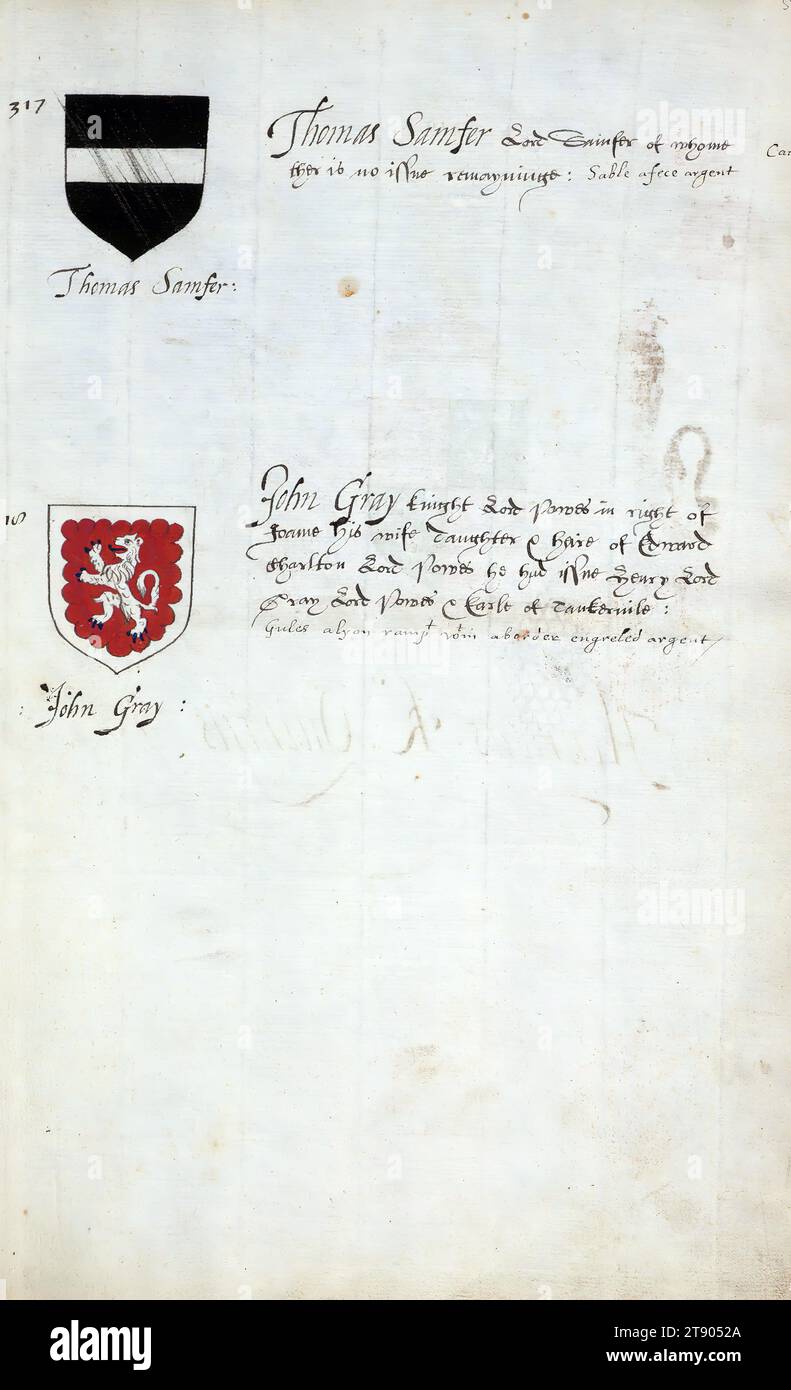 317
Thomas Samfer Lord Samfer of whome
ther is no issue remayninge: Sable a fece argent
Thomas Samfer:
18
John Gray knight Lord Powes in right of
Joane his wife daughter & heire of Edward
Charlton Lord Powes he had issue Henry Lord
Gray Lord Powes & Earle of Tankervile:
Gules a lyon rampt wtin a border engreled argent
: John Gray :
alamy
Image ID: 2T9052A
www.alamy.com